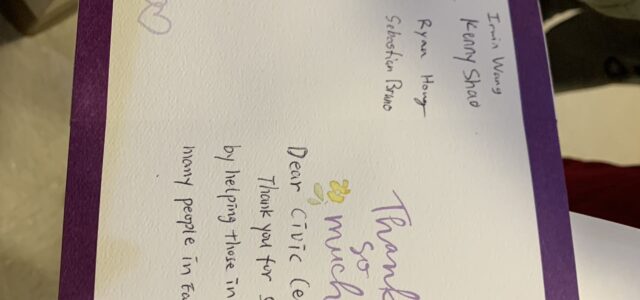 Irwin Wang
Kenny Shao
Ryan Hong
Sebastian Bruno
Thank
so
much
Dear Civic Ce
Thank you for
by helping those in
many people in Ea